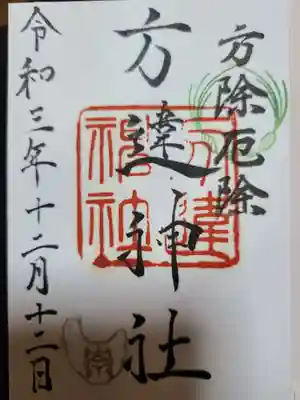 方除厄除
方違神社
令和三年十二月十二日
方違
神社